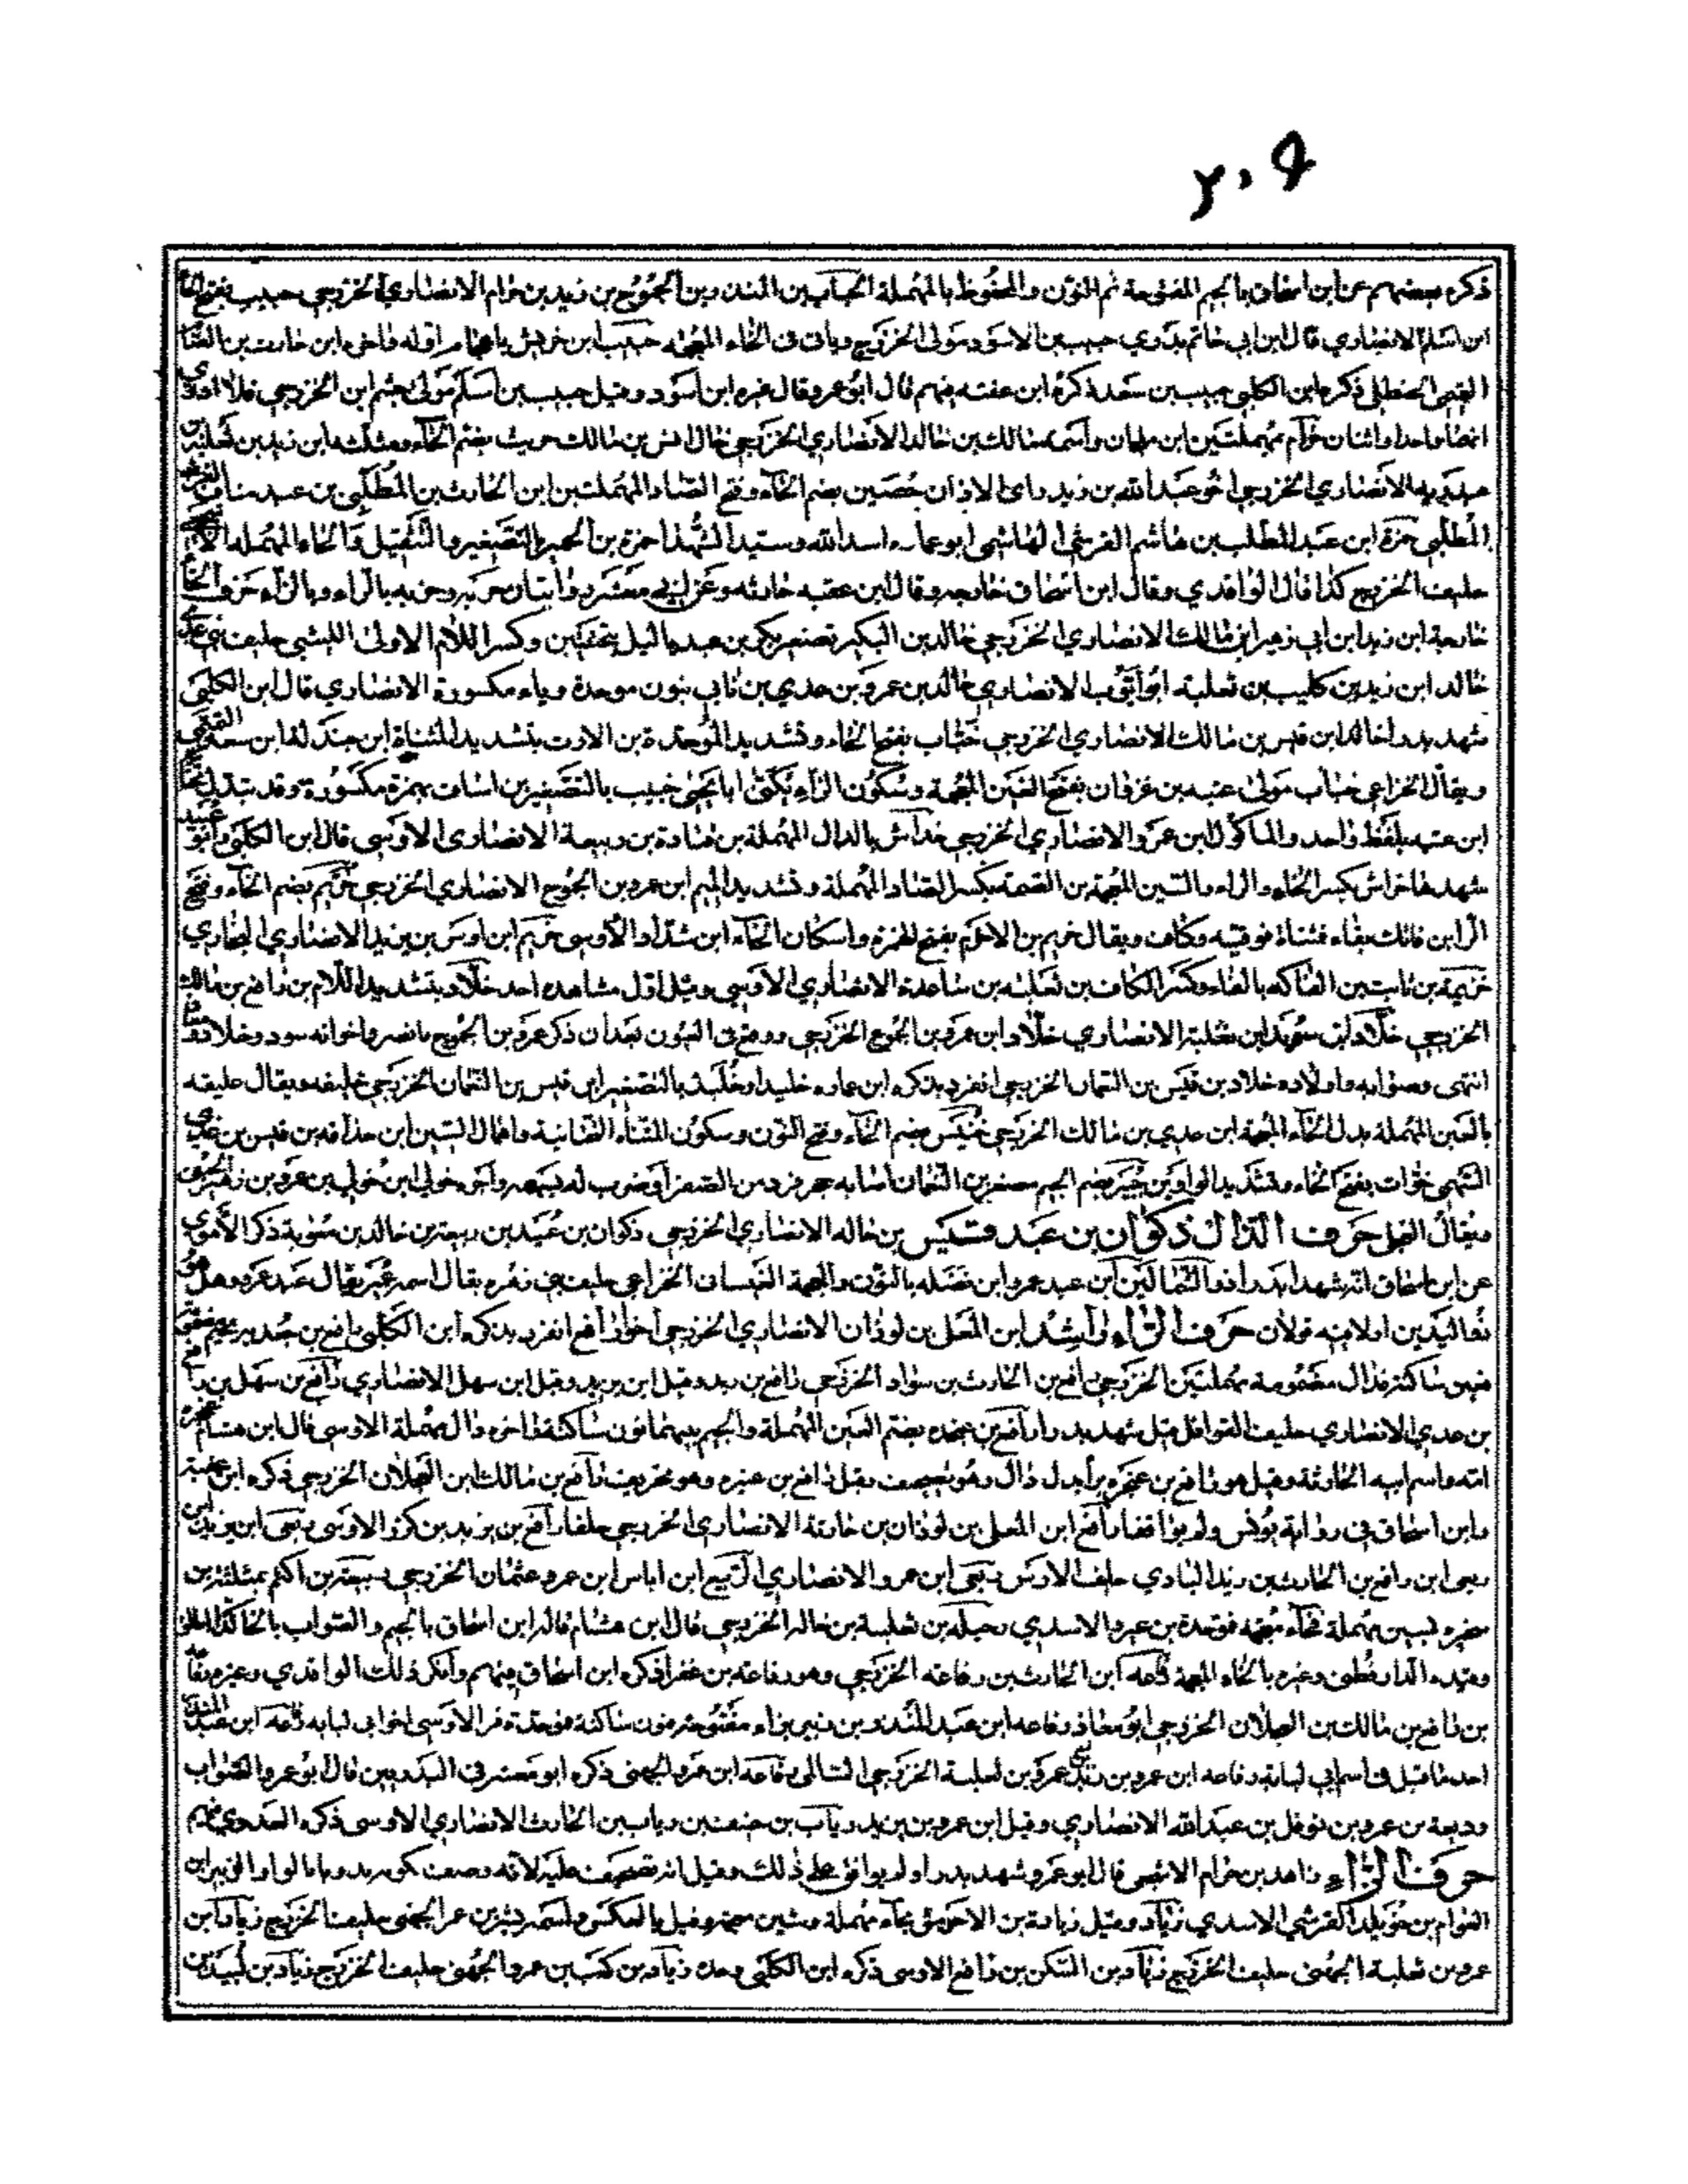 ذكره بعضهم عن ابن اسحاق بالجيم المفتوحة ثم النون والمحفوظ بالمهملة الحباب بن المنذر بن الجموح بن زيد بن حرام الانصاري الخزرجي حبيب بفتح الحا
ابن اسلم الانصاري قال ابن ابي حاتم بدوي حبيب بن الاسود مولى الخزرج وياتي في الخاء المعجمه حبيب ابن خراش
التميمي الحنظلي ذكره ابن الكلبي حبيب بن سعد ذكره ابن عقبه فيهم قال ابو عمرو وقال غيره ابن اسود وقيل حبيب بن اسلم مولى جشم ابن الخزرجي فلا ادري
ايضا واحد او اثنان حرام بمهملتين ابن ملحان واسمه مالك بن خالد الانصاري الخزرجي خال انس بن مالك حريث بضم الحاء ومثلثه ابن زيد بن ثعلبة بن
عبد ربه الانصاري الخزرجي اخو عبد الله بن زيد راى الاذان حصين بضم الحاء وفتح الصاد المهملتين ابن الحارث بن المطلب بن عبد مناف القرشي
المطلبي حمزة ابن عبد المطلب بن هاشم القرشي الهاشمي ابو عماره اسد الله وسيد الشهدا حمزة بن الحمير بالتصغير والتثقيل والحاء المهملة
حليف الخزرج كذا قال الواقدي وقال ابن اسحاق خارجه وقال ابن عقبه حارثه وعن ابي معشر حرف الخا
خارجة ابن زيد ابن ابي زهير ابن مالك الانصاري الخزرجي خالد بن البكير تصغير بكر بن عبد ياليل وكسر اللام الاولى الليثي حليف بني عدي
خالد ابن زيد بن كليب بن ثعلبه ابو ايوب الانصاري خالد بن عمرو بن عدي بن نابي بنون موحدة وياء مكسورة الانصاري قال ابن الكلبي
شهد بدرا خالد ابن قيس بن مالك الانصاري الخزرجي خباب بفتح الخاء وتشديد الموحدة بن الارت بتشديد المثناة ابن جندلة ابن سعد التميمي
ويقال الخزاعي خباب مولى عتبه بن غزوان بفتح الغين المعجمة وسكون الزاء يكنى ابا يحيى خبيب بالتصغير بن اساف بهمزة مكسورة وقد تبدل
ابن عتبه بلفظ واحد والماكول ابن عمرو الانصاري الخزرجي خداش بالدال المهملة بن قتادة بن ربيعة الانصاري الاوسي قال ابن الكلبي وابو عبيد
شهدها خراش بكسر الخاء والراء والشين المعجمة بن الصمة بكسر الصاد المهملة وتشديد الميم ابن عمرو بن الجموح الانصاري الخزرجي خريم بضم الخاء وفتح
الرا بن فاتك بفاء فمثناة فوقيه وكاف ويقال خريم بن الاخرم بفتح الهمزة واسكان الخاء ابن شداد الاوسي خزيم ابن اوس بن يزيد الانصاري البخاري
خزيمة بن ثابت بن الفاكه بالفاء وكسر الكاف بن ثعلبه بن ساعدة الانصاري الاوسي وقيل اول مشاهده احد خلاد بتشديد اللام بن رافع بن مالك
الخزرجي خلاد ابن سويد ابن ثعلبة الانصاري خلاد ابن عمرو بن الجموح الخزرجي ووقع في العيون بعد ان ذكر عمرو بن الجموح
انتهى وصوابه واولاده خلاد بن قيس بن النعمان الخزرجي انفرد بذكره ابن عماره خليد او خليدة بالتصغير ابن قيس بن النعمان الخزرجي خليفه ويقال عليفه
بالعين المهملة بدل الخاء المعجمة ابن عدي بن مالك الخزرجي خنيس بضم الخاء وفتح النون وسكون المثناه التحتانية واهمال السين ابن حذافه بن قيس بن عدي
السهمي خوات بفتح الخاء وتشديد الواو بن جبير بضم الجيم مصغر بن النعمان اصابه حجر فرد من الصفرا وضرب له بسهمه واجره خولي ابن خولي بن عمرو بن زهير
ويقال العجل حرف الذال ذكوان بن عبد قيس بن خالد الانصاري الخزرجي ذكوان بن عبيد بن ربيعة بن خالد بن معوية ذكر الأموي
عن ابن اسحاق انه شهد بدرا ذو الشمالين ابن عبد عمرو ابن نضله بالنون والمعجمة الخزاعي حليف بني زهره يقال اسمه عمير ويقال عبد عمرو وهل هو
ذو اليدين او لا فيه قولان حرف الراء راشد ابن المعلى بن لوذان الانصاري الخزرجي اخو رافع انفرد بذكره ابن الكلبي رافع بن
فنون ساكنة فدال مضمومة مهملتين الخزرجي رافع بن الحارث بن سواد الخزرجي رافع بن زيد وقيل ابن يزيد وقيل ابن سهل الانصاري رافع بن سهل بن رافع
بن عدي الانصاري حليف القواقل قيل شهد بدرا رافع بن عنجده بضم العين المهملة والجيم بينهما نون ساكنة واخره دال مهملة الاوسي قال ابن هشام
امه واسم ابيه الحارثة وقيل هو رافع بن عنجره براء بدل دال وهو تصحيف وقيل رافع بن عنتره وهو تحريف رافع بن مالك ابن العجلان الخزرجي ذكره ابن عقبة
وابن اسحاق في رواية يونس ولم يوافقا رافع ابن المعلى بن لوذان بن حارثة الانصاري الخزرجي رافع بن يزيد بن كرز الاوسي
ربعي ابن رافع بن الحارث بن زيد حليف الاوس ربعي ابن عمرو الانصاري الربيع ابن اياس ابن عمرو عثمان الخزرجي ربيعة بن اكثم بمثلثة بن
سخبره بسين مهملة فخاء معجمه فوحدة بن عمرو الاسدي رحيله بن ثعلبة بن خالد الخزرجي قال ابن هشام قاله ابن اسحاق بالجيم والصواب بالخا
وقيده الدارقطني وغيره بالخاء المعجمة رفاعه ابن الحارث بن رفاعه الخزرجي وهو رفاعه بن عفرا ذكره ابن اسحاق فيهم وانكر ذلك الواقدي وغيره رفاعة
بن رافع بن مالك بن العجلان الخزرجي ابو معاذ رفاعه ابن عبد المنذر بن زنبر بزاء مفتوحة فنون ساكنة فوحدة فرا الاوسي اخو ابي لبابه رفاعه ابن عبد المنذر
احد ما قيل في اسم ابي لبابة رفاعه ابن عمرو بن زيد بن عمرو بن ثعلبة الخزرجي السالمي رفاعه ابن عمرو الجهني ذكره ابو معشر في البدريين قال ابو عمر والصواب
وديعة بن عمرو بن نوفل بن عبد الله الانصاري وقيل ابن عمرو بن يزيد رياب بن حنيف بن رياب بن الحارث الانصاري الاوسي ذكره العدوي فيهم
حرف الزاء زاهد بن حرام الاشجعي قال ابو عمرو شهد بدرا ولم يوافق على ذلك وقيل انه تصحيف عليه لانه وصف بكونه بدويا بالواو الزبير ابن
العوام بن خويلد القرشي الاسدي زياد وقيل زيادة بن الاخرش بخاء مهملة وشين معجمة وقيل بالعكس واسمه بشر بن عمر الجهني حليف الخزرج زياد ابن
عمرو بن ثعلبة الجهني حليف الخزرج زياد بن السكن بن رافع الاوسي ذكره ابن الكلبي وحده زياد بن كعب بن عمرو الجهني حليف الخزرج زياد بن لبيد بن